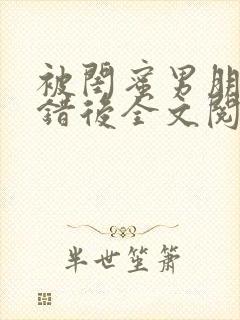 被閨蜜男朋
錯後全文閱
半世笙簫